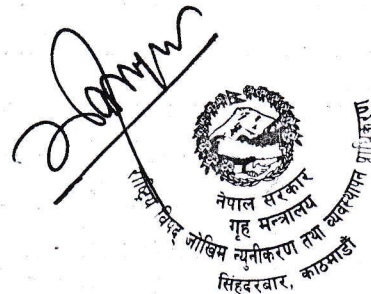 नेपाल सरकार
गृह मन्त्रालय
राष्ट्रिय विपद् जोखिम न्युनीकरण तथा व्यवस्थापन प्राधिकरण
सिंहदरबार, काठमाडौं